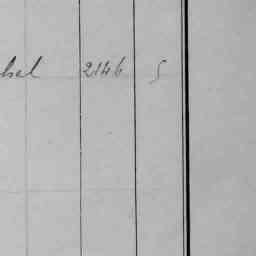 hel 2146 5